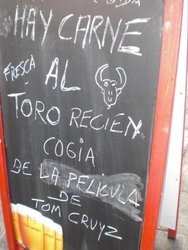 HAY CARNE
FRESCA
AL
TORO RECIEN
COGIA
DE LA PELICULA
DE
TOM CRUYZ